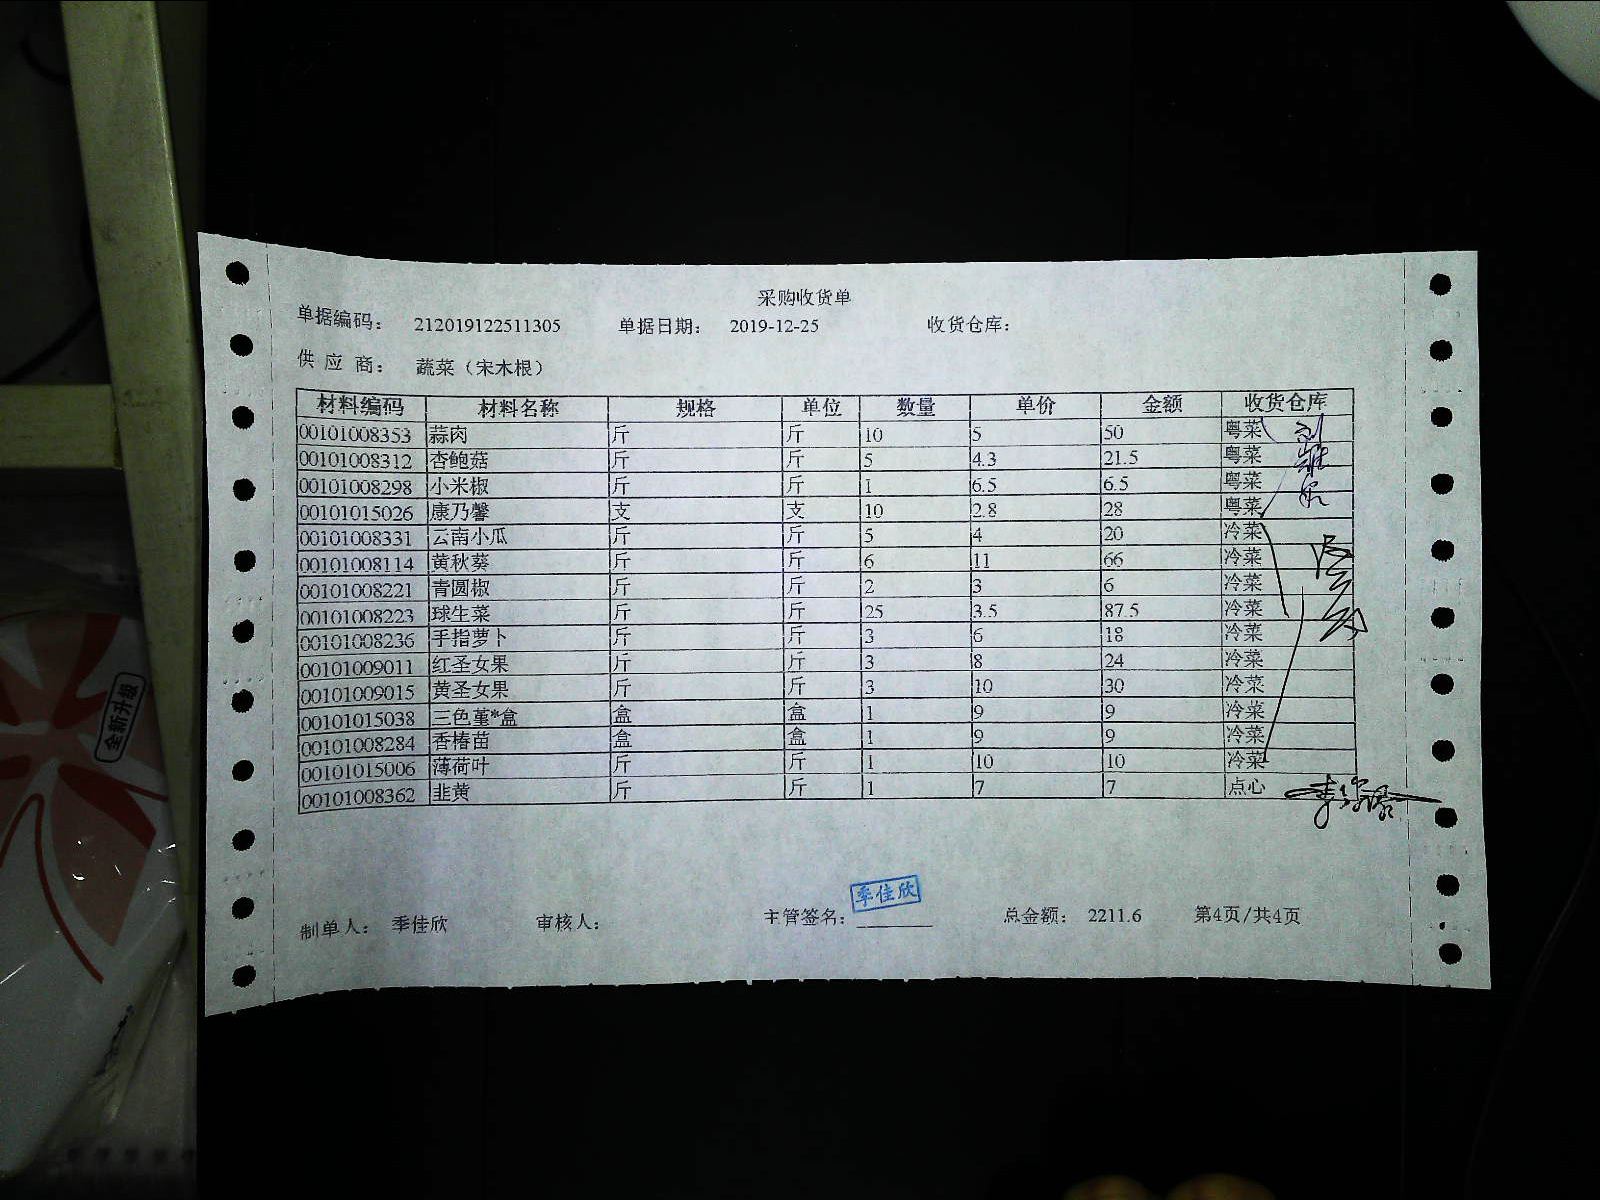 采购收货单
单据编码： 212019122511305 单据日期： 2019-12-25 收货仓库：
供 应 商： 蔬菜（宋木根）
材料编码 材料名称 规格 单位 数量 单价 金额 收货仓库
00101008353 蒜肉 斤 斤 10 5 50 粤菜
00101008312 杏鲍菇 斤 斤 5 4.3 21.5 粤菜
00101008298 小米椒 斤 斤 1 6.5 6.5 粤菜
00101015026 康乃馨 支 支 10 2.8 28 粤菜
00101008331 云南小瓜 斤 斤 5 4 20 冷菜
00101008114 黄秋葵 斤 斤 6 11 66 冷菜
00101008221 青圆椒 斤 斤 2 3 6 冷菜
00101008223 球生菜 斤 斤 25 3.5 87.5 冷菜
00101008236 手指萝卜 斤 斤 3 6 18 冷菜
00101009011 红圣女果 斤 斤 3 8 24 冷菜
00101009015 黄圣女果 斤 斤 3 10 30 冷菜
00101015038 三色堇*盒 盒 盒 1 9 9 冷菜
00101008284 香椿苗 盒 盒 1 9 9 冷菜
00101015006 薄荷叶 斤 斤 1 10 10 冷菜
00101008362 韭黄 斤 斤 1 7 7 点心
季佳欣
制单人： 季佳欣 审核人： 主管签名： 总金额： 2211.6 第4页/共4页
全新升级